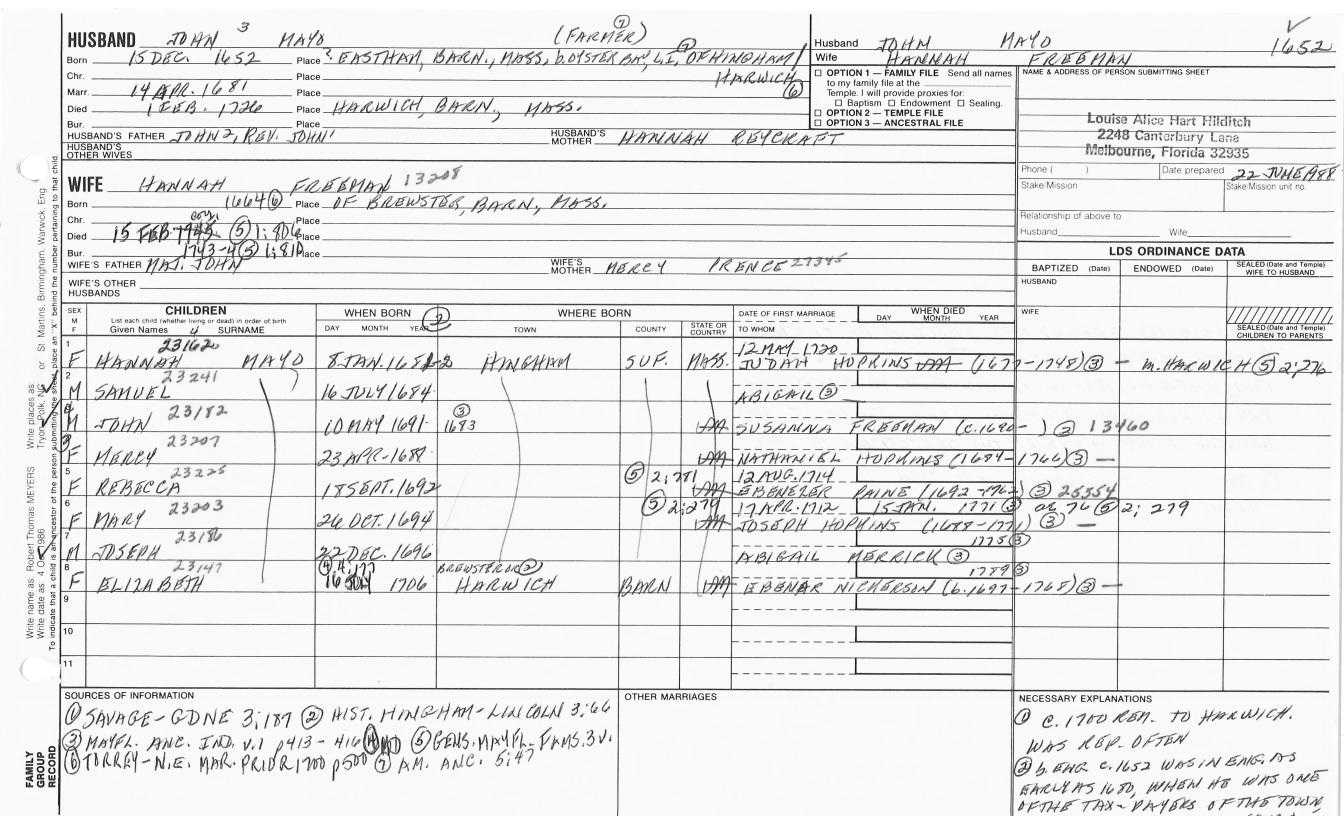 HUSBAND JOHN 3 MAYO (FARMER) ⑦
Born 15 DEC. 1652 Place ? EASTHAM, BARN., MASS, b. OYSTER BAY, L.I. ⑦, OF HINGHAM/
Chr. Place HARWICH ⑥
Marr. 14 APR. 1681 Place
Died 1 FEB. 1726 Place HARWICH, BARN., MASS.
Bur. Place
HUSBAND'S FATHER JOHN 2, REV. JOHN' HUSBAND'S MOTHER HANNAH REYCRAFT
HUSBAND'S OTHER WIVES
Husband JOHN MAYO 1652
Wife HANNAH FREEMAN
☐ OPTION 1 — FAMILY FILE Send all names
to my family file at the
Temple. I will provide proxies for:
☐ Baptism ☐ Endowment ☐ Sealing.
☐ OPTION 2 — TEMPLE FILE
☐ OPTION 3 — ANCESTRAL FILE
NAME & ADDRESS OF PERSON SUBMITTING SHEET
Louise Alice Hart Hilditch
2248 Canterbury Lane
Melbourne, Florida 32935
Phone ( ) Date prepared 22 JUNE 1988
Stake Mission Stake Mission unit no.
Relationship of above to
Husband Wife
WIFE HANNAH FREEMAN 13208
Born 1664 ⑥ Place OF BREWSTER, BARN., MASS.
Chr. Place
Died 15 FEB ⑤ 1; 806 Place
Bur. 1743-4 ⑤ 1; 810 Place
WIFE'S FATHER MAJ. JOHN WIFE'S MOTHER MERCY PRENCE 27345
WIFE'S OTHER HUSBANDS
LDS ORDINANCE DATA
BAPTIZED (Date) ENDOWED (Date) SEALED (Date and Temple) WIFE TO HUSBAND
HUSBAND
WIFE
SEALED (Date and Temple) CHILDREN TO PARENTS
SEX M F CHILDREN WHEN BORN ② WHERE BORN DATE OF FIRST MARRIAGE WHEN DIED
List each child (whether living or dead) in order of birth
Given Names 4 SURNAME DAY MONTH YEAR TOWN COUNTY STATE OR COUNTRY TO WHOM DAY MONTH YEAR
1 23162 12 MAY 1720
F HANNAH MAYO 8 JAN. 1681-2 HINGHAM SUF. MASS. JUDAH HOPKINS (1677-1748) ③ — m. HARWICH ⑤ 2; 276
2 23241
M SAMUEL 16 JULY 1684 ABIGAIL ③
4 23182 ③
M JOHN 10 MAY 1691 1693 SUSANNA FREEMAN (c. 1690- ) ② 13460
3 23207
F MERCY 23 APR. NATHANIEL HOPKINS (1684-1766) ③ —
5 23225 ⑤ 2; 281 12 AUG. 1714
F REBECCA 18 SEPT. 1692 EBENEZER PAINE (1692-1762) ③ 25354
6 23203 ⑤ 2; 279 17 APR. 1712 15 JAN. 1771 ③ or 76 ⑤ 2; 279
F MARY 26 OCT. 1694 JOSEPH HOPKINS (1688-1771) ③ —
7 23186 1775 ③
M JOSEPH 22 DEC. 1696 ABIGAIL MERRICK ③
8 23147 BREWSTER OR ② 1789 ③
F ELIZABETH 1706 HARWICH BARN NICKERSON (b. 1697-1768) ③ —
9
10
11
SOURCES OF INFORMATION
① SAVAGE-GDNE 3; 187 ② HIST. HINGHAM-LINCOLN 3; 66
③ MAYFL. ANC. IND. V.1 p413-416 ④ MD ⑤ GENS. MAYFL. FAMS. 3V.
⑥ TORREY-N.E. MAR. PRIOR 1700 p500 ⑦ AM. ANC. 5; 47
OTHER MARRIAGES
NECESSARY EXPLANATIONS
① C. 1700 REM. TO HARWICH.
WAS REP. OFTEN
② b. ENG C. 1652 WAS IN ENG. AS
EARLY AS 1680, WHEN HE WAS ONE
OF THE TAX-PAYERS OF THE TOWN,
FAMILY GROUP RECORD
Write name as: Robert Thomas MEYERS Write places as: Tryon, Polk, NC or St Martins, Birmingham, Warwick, Eng
Write date as: 4 Oct 1986
To indicate that a child is an ancestor of the person submitting the sheet, place an "X" behind the number pertaining to that child